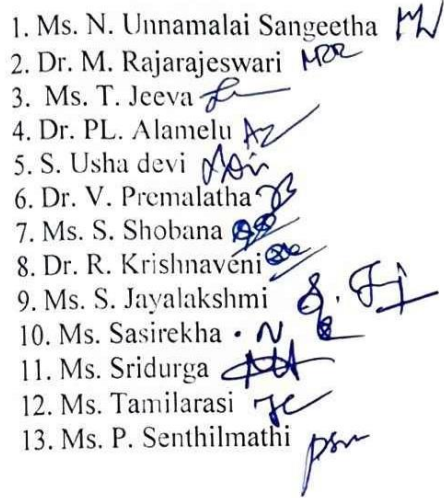 1. Ms. N. Unnamalai Sangeetha
2. Dr. M. Rajarajeswari
3. Ms. T. Jeeva
4. Dr. PL. Alamelu
5. S. Usha devi
6. Dr. V. Premalatha
7. Ms. S. Shobana
8. Dr. R. Krishnaveni
9. Ms. S. Jayalakshmi
10. Ms. Sasirekha . N
11. Ms. Sridurga
12. Ms. Tamilarasi
13. Ms. P. Senthilmathi